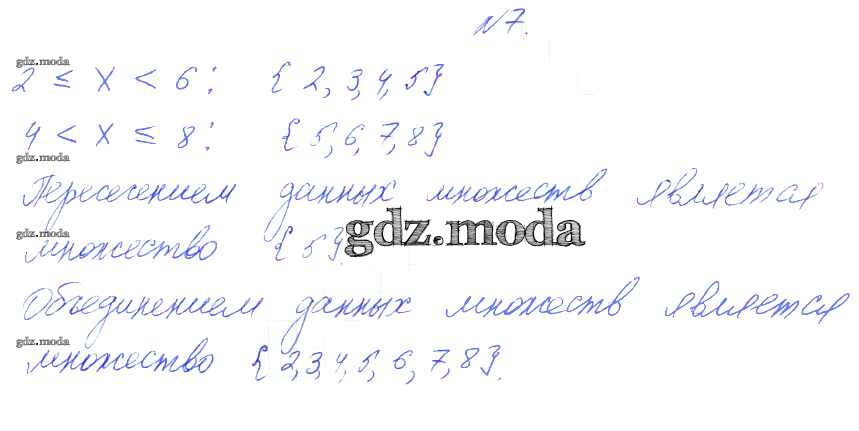 N7.
gdz.moda
2 ≤ x < 6: { 2, 3, 4, 5}
4 < x ≤ 8: {5, 6, 7, 8}
gdz.moda
Пересечением данных множеств является
gdz.moda
множество {5}.
gdz.moda
Объединением данных множеств является
gdz.moda
множество {2,3,4,5, 6, 7, 8}.